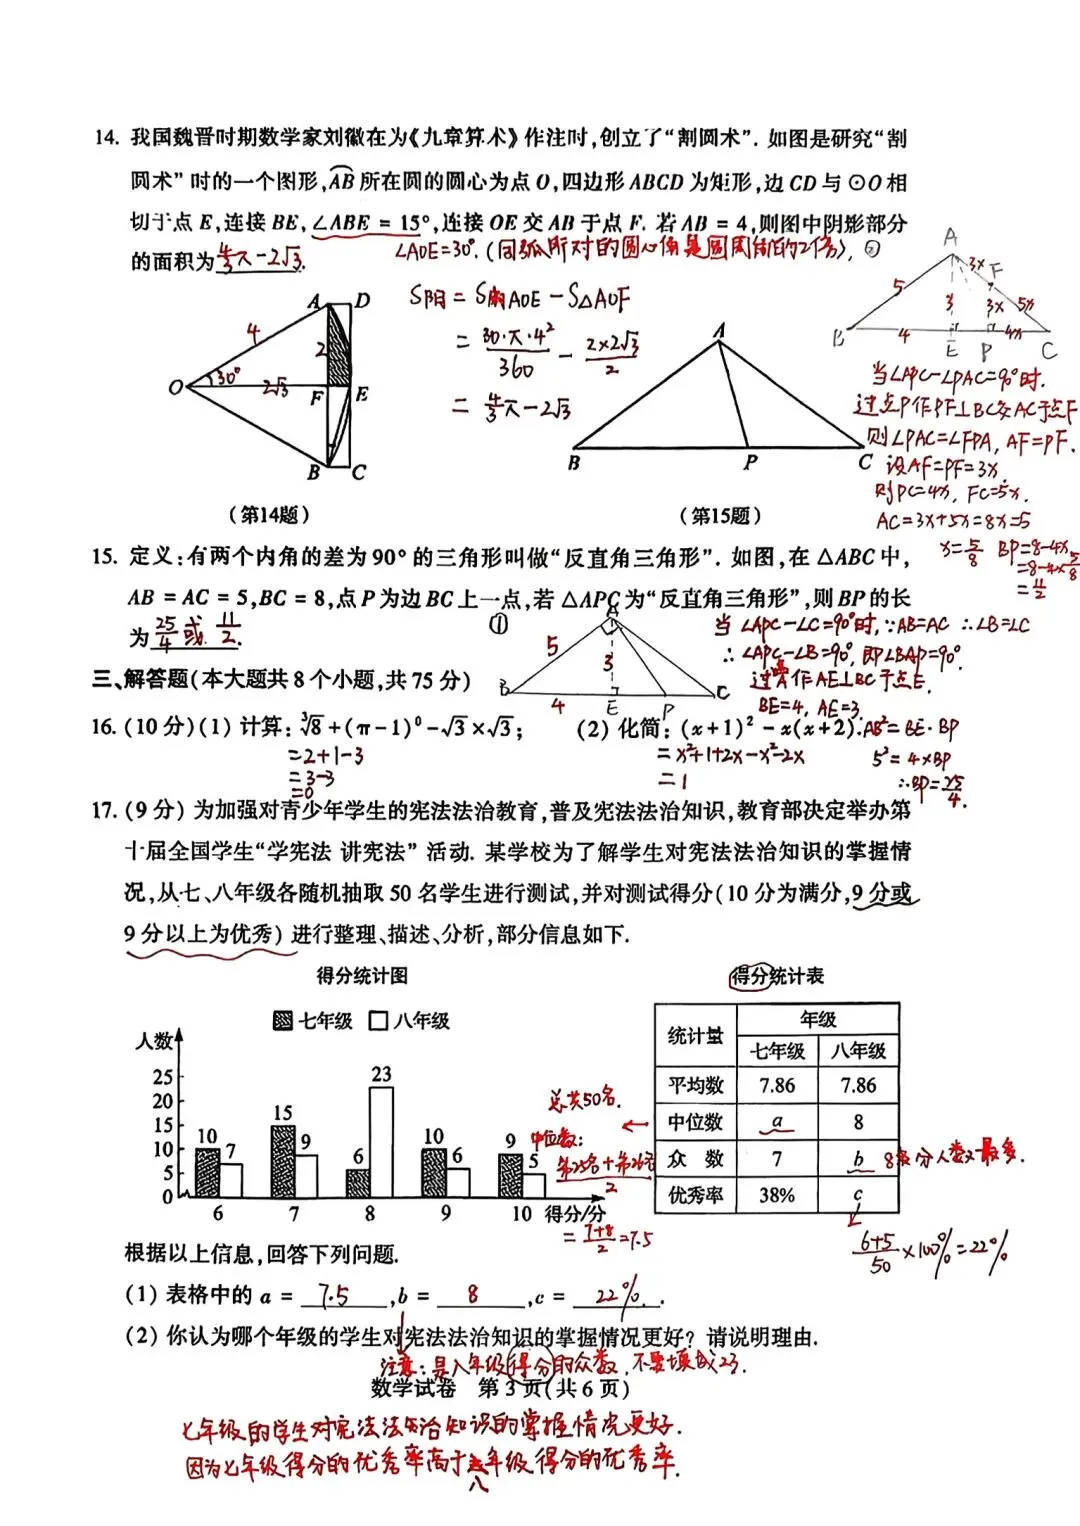 14. 我国魏晋时期数学家刘徽在为《九章算术》作注时,创立了“割圆术”. 如图是研究“割
圆术”时的一个图形,AB所在圆的圆心为点O,四边形ABCD为矩形,边CD与⊙O相
切于点E,连接BE,∠ABE = 15°,连接OE交AB于点F. 若AB = 4,则图中阴影部分
的面积为 4/3π-2√3.
∠AOE=30°.(同弧所对的圆心角是圆周角的2倍),
S阴 = S扇AOE - S△AOF
= 30·π·4²/360 - 2×2√3/2
= 4/3π-2√3
A D
4
2
O 30° 2√3 F E
B C
(第14题)
A
B P C
(第15题)
②
A
3x
F
5 3 3x 5x
B 4 E P 4x C
当∠APC-∠PAC=90°时.
过点P作PF⊥BC交AC于点F
则∠PAC=∠FPA, AF=PF.
设AF=PF=3x.
则PC=4x, FC=5x.
AC=3x+5x=8x=5
x=5/8 BP=8-4x
=8-4×5/8
=11/2
15. 定义:有两个内角的差为90°的三角形叫做“反直角三角形”. 如图,在△ABC中,
AB = AC = 5,BC = 8,点P为边BC上一点,若△APC为“反直角三角形”,则BP的长
为 25/4 或 11/2.
①
A
5 3
B 4 E P C
当∠APC-∠C=90°时,∵AB=AC ∴∠B=∠C
∴∠APC-∠B=90°, 即∠BAP=90°.
过点A作AE⊥BC于点E.
BE=4, AE=3.
AB²=BE·BP
5²=4×BP
∴BP=25/4.
三、解答题(本大题共8个小题,共75分)
16. (10分)(1) 计算: ³√8+(π-1)⁰-√3×√3; (2) 化简: (x+1)²-x(x+2).
=2+1-3
=3-3
=0
=x²+1+2x-x²-2x
=1
17. (9分) 为加强对青少年学生的宪法法治教育,普及宪法法治知识,教育部决定举办第
十届全国学生“学宪法 讲宪法”活动. 某学校为了解学生对宪法法治知识的掌握情
况,从七、八年级各随机抽取50名学生进行测试,并对测试得分(10分为满分,9分或
9分以上为优秀)进行整理、描述、分析,部分信息如下.
得分统计图
七年级 八年级
人数
25
20
15
10
5
0
10 7 15 9 6 23 10 6 9 5
6 7 8 9 10 得分/分
总共50名.
中位数:
第25名+第26名/2
=7+8/2=7.5
得分统计表
统计量 年级
七年级 八年级
平均数 7.86 7.86
中位数 a 8
众 数 7 b
优秀率 38% c
6+5/50×100%=22%
根据以上信息,回答下列问题.
(1) 表格中的a = 7.5,b = 8,c = 22%.
(2) 你认为哪个年级的学生对宪法法治知识的掌握情况更好? 请说明理由.
注意:是八年级得分的众数,不要填成23.
数学试卷 第3页(共6页)
七年级的学生对宪法法治知识的掌握情况更好.
因为七年级得分的优秀率高于八年级得分的优秀率.